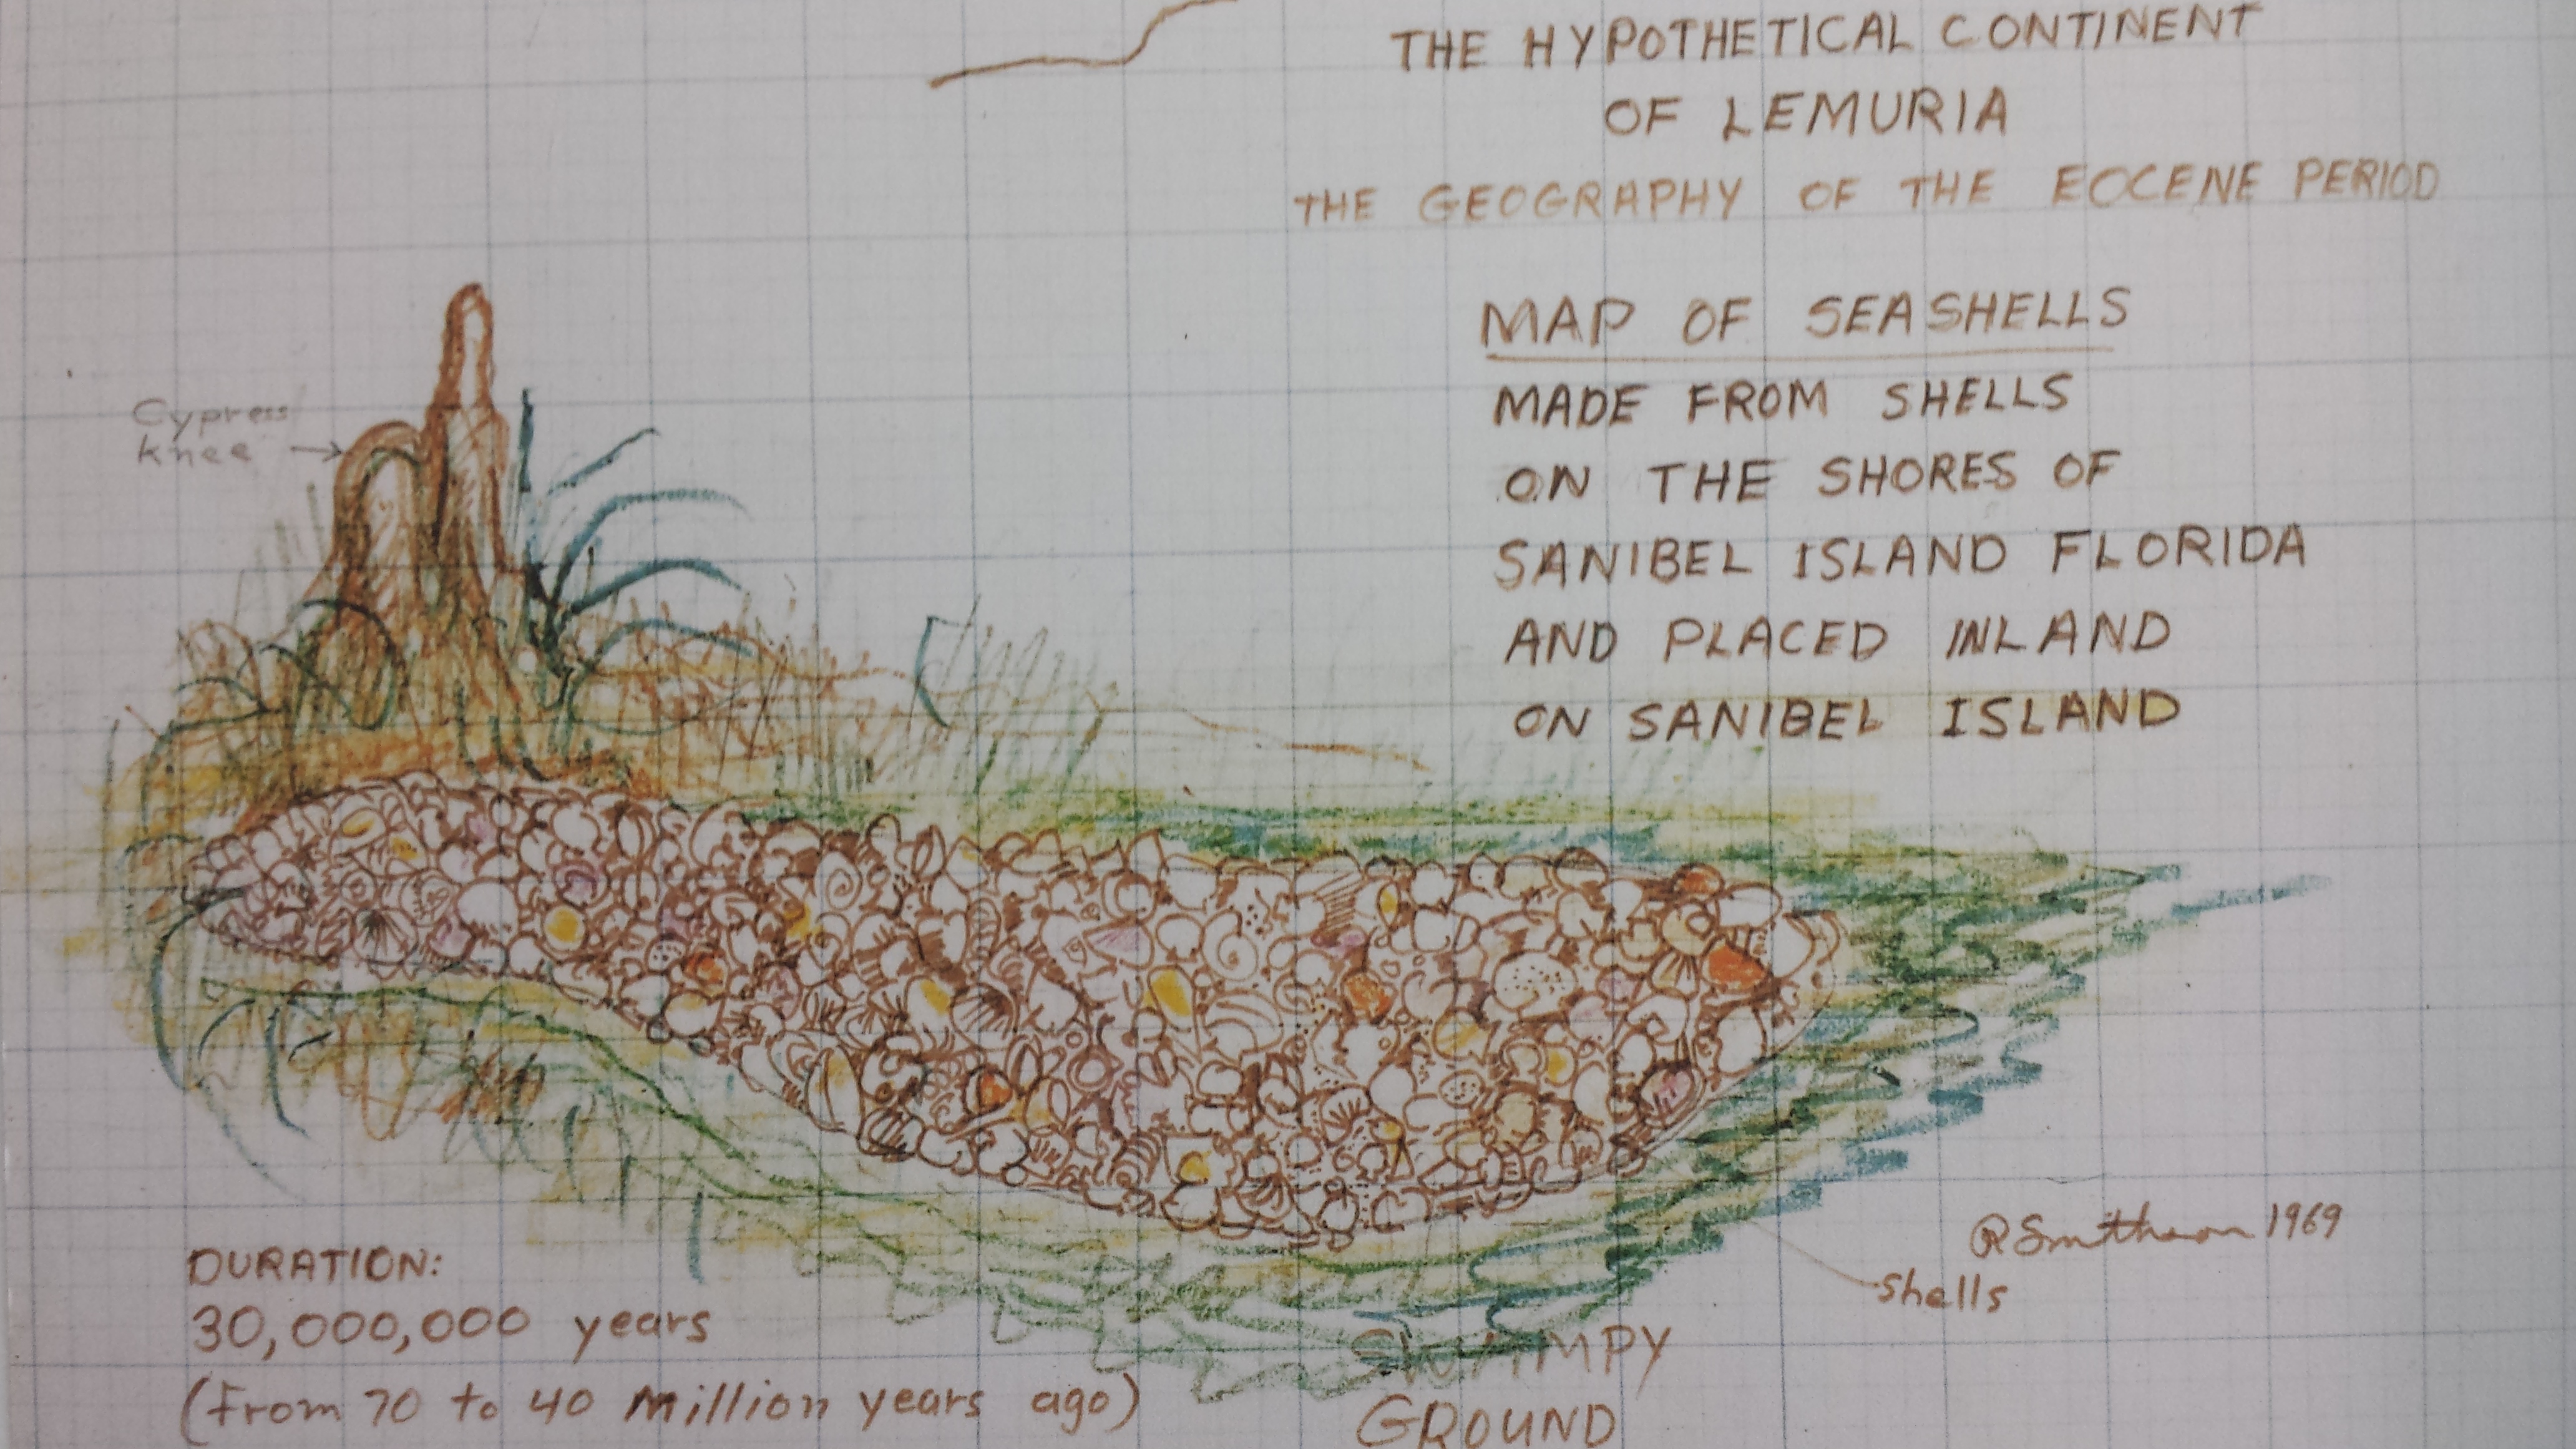 THE HYPOTHETICAL CONTINENT
OF LEMURIA
THE GEOGRAPHY OF THE EOCENE PERIOD
MAP OF SEASHELLS
MADE FROM SHELLS
ON THE SHORES OF
SANIBEL ISLAND FLORIDA
AND PLACED INLAND
ON SANIBEL ISLAND
Cypress
knee
R Smithson 1969
shells
DURATION:
30,000,000 years
(from 70 to 40 million years ago)
SWAMPY
GROUND